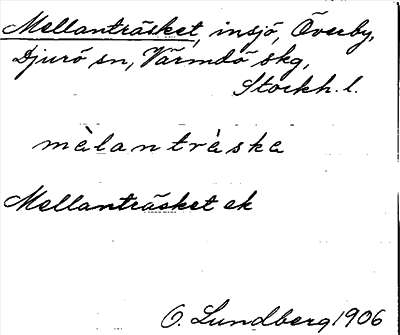 Mellanträsket, insjö, Överby,
Djurö sn, Värmdö skg,
Stockh. l.
mèlantràska
Mellanträsket ek
O. Lundberg 1906